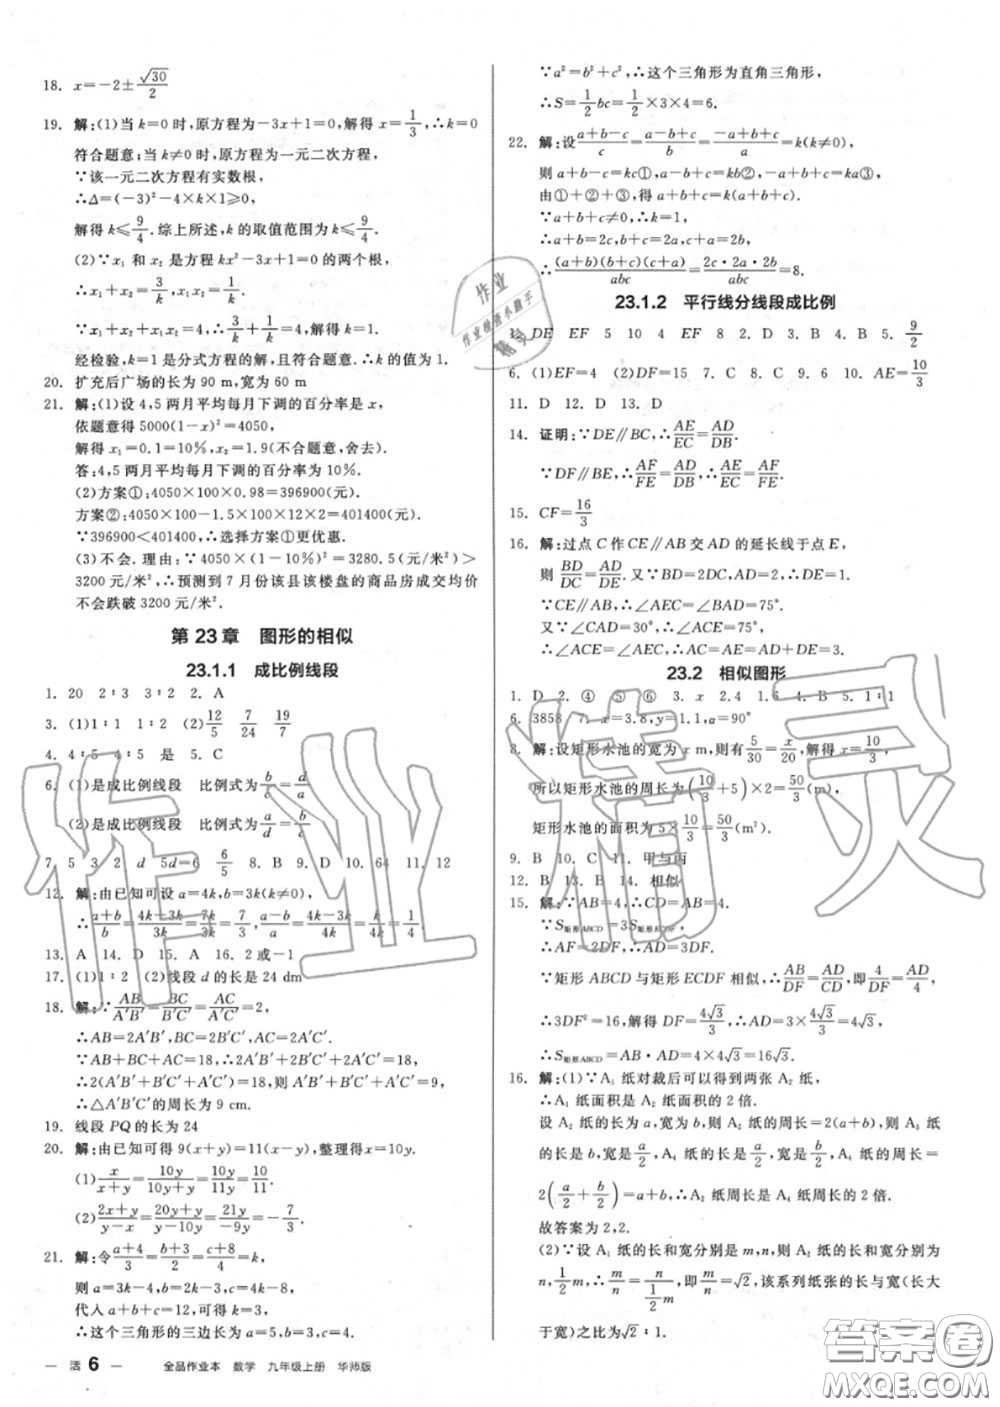 18. x=-2±√30/2
19. 解:(1)当 k=0 时,原方程为-3x+1=0,解得 x=1/3,∴k=0
符合题意;当 k≠0 时,原方程为一元二次方程,
∵该一元二次方程有实数根,
∴Δ=(-3)²-4×k×1≥0,
解得 k≤9/4.综上所述,k 的取值范围为 k≤9/4.
(2)∵x₁ 和 x₂ 是方程 kx²-3x+1=0 的两个根,
∴x₁+x₂=3/k,x₁x₂=1/k.
∵x₁+x₂+x₁x₂=4,∴3/k+1/k=4,解得 k=1.
经检验,k=1 是分式方程的解,且符合题意,∴k 的值为 1.
20. 扩充后广场的长为 90 m,宽为 60 m
21. 解:(1)设 4,5 两月平均每月下调的百分率是 x,
依题意得 5000(1-x)²=4050,
解得 x₁=0.1=10%,x₂=1.9(不合题意,舍去).
答:4,5 两月平均每月下调的百分率为 10%.
(2)方案①:4050×100×0.98=396900(元).
方案②:4050×100-1.5×100×12×2=401400(元).
∵396900<401400,∴选择方案①更优惠.
(3)不会. 理由:∵4050×(1-10%)²=3280.5(元/米²)>
3200 元/米²,∴预测到 7 月份该县该楼盘的商品房成交均价
不会跌破 3200 元/米².
第 23 章 图形的相似
23.1.1 成比例线段
1. 20 2∶3 3∶2 2. A
3. (1)1∶1 1∶2 (2)12/5 7/24 19/7
4. 4∶5 4∶5 是 5. C
6. (1)是成比例线段 比例式为b/c=a/a
(2)是成比例线段 比例式为a/d=b/c
7. 5 3 2 d 5d=6 6/5 8. B 9. D 10. 64 11. 12
12. 解:由已知可设 a=4k,b=3k(k≠0),
∴(a+b)/b=(4k+3k)/3k=7k/3k=7/3,(a-b)/a=(4k-3k)/4k=k/4k=1/4.
13. A 14. D 15. A 16. 2 或-1
17. (1)1∶2 (2)线段 d 的长是 24 dm
18. 解:∵AB/A′B′=BC/B′C′=AC/A′C′=2,
∴AB=2A′B′,BC=2B′C′,AC=2A′C′.
∵AB+BC+AC=18,∴2A′B′+2B′C′+2A′C′=18,
∴2(A′B′+B′C′+A′C′)=18,则 A′B′+B′C′+A′C′=9,
∴△A′B′C′的周长为 9 cm.
19. 线段 PQ 的长为 24
20. 解:由已知可得 9(x+y)=11(x-y),整理得 x=10y.
(1)x/(x+y)=10y/(10y+y)=10y/11y=10/11.
(2)(2x+y)/(y-x)=(20y+y)/(y-10y)=21y/-9y=-7/3.
21. 解:令(a+4)/3=(b+3)/2=(c+8)/4=k,
则 a=3k-4,b=2k-3,c=4k-8,
代入 a+b+c=12,可得 k=3,
∴这个三角形的三边长为 a=5,b=3,c=4.
∵a²=b²+c²,∴这个三角形为直角三角形,
∴S=1/2bc=1/2×3×4=6.
22. 解:设(a+b-c)/c=(a-b+c)/b=(-a+b+c)/a=k,
则 a+b-c=kc①,a-b+c=kb②,-a+b+c=ka③,
由①+②+③,得 a+b+c=k(a+b+c).
∵a+b+c≠0,∴k=1,
∴a+b=2c,b+c=2a,c+a=2b,
∴(a+b)(b+c)(c+a)/abc=2c·2a·2b/abc=8.
23.1.2 平行线分线段成比例
1. DE EF 5 10 4 EF 8 2. D 3. B 4. B 5. 9/2
6. (1)EF=4 (2)DF=15 7. C 8. C 9. 6 10. AE=10/3
11. D 12. D 13. D
14. 证明:∵DE∥BC,∴AE/EC=AD/DB.
∵DF∥BE,∴AF/FE=AD/DB,∴AF/FE=AE/EC.
15. CF=16/3
16. 解:过点 C 作 CE∥AB 交 AD 的延长线于点 E,
则 BD/DC=AD/DE.又∵BD=2DC,AD=2,∴DE=1.
∵CE∥AB,∴∠ACE=∠BAD=75°.
又∵∠CAD=30°,∴∠ACE=∠E=75°,
∴AC=AE=AD+DE=3.
23.2 相似图形
1. D 2. ④ ⑤ ⑥ 3. x 2.4 1.6 4. B 5. 1∶1
6. 3858 7. x=3.8,y=1.1,α=90°
8. 解:设矩形水池的宽为 x m,则有5/30=x/20,解得 x=10/3,
所以矩形水池的周长为(10/3+5)×2=50/3(m),
矩形水池的面积为 5×10/3=50/3(m²).
9. B 10. C 11. 甲与丙
12. B 13. B 14. 相似
15. 解:∵AB=4,∴CD=AB=4.
∵S矩形ABCD=3S矩形ECDF,
∴AF=2DF,∴AD=3DF.
∵矩形 ABCD 与矩形 ECDF 相似,∴AB/DF=AD/CD,即4/DF=AD/4,
∴3DF²=16,解得 DF=4√3/3,∴AD=3×4√3/3=4√3,
∴S矩形ABCD=AB·AD=4×4√3=16√3.
16. 解:(1)∵A₁ 纸对裁后可以得到两张 A₂ 纸,
∴A₁ 纸面积是 A₂ 纸面积的 2 倍.
设 A₂ 纸的长为 a,宽为 b,则 A₂ 纸的周长=2(a+b),A₄ 纸
的长是a/2,宽为b/2,A₄ 纸的周长=
2(a/2+b/2)=a+b,∴A₂ 纸周长是 A₄ 纸周长的 2 倍.
故答案为 2,2.
(2)∵设 A₁ 纸的长和宽分别是 m,n,则 A₂ 纸的长和宽分别为
n,1/2m,∴m/n=n/(1/2m),即m/n=√2,∴该系列纸张的长与宽(长大
于宽)之比为√2∶1.
— 活 6 — 全品作业本 数学 九年级上册 华师版
作业精灵
作业
作业检查小助手
精灵
答案卷
MXQE.COM